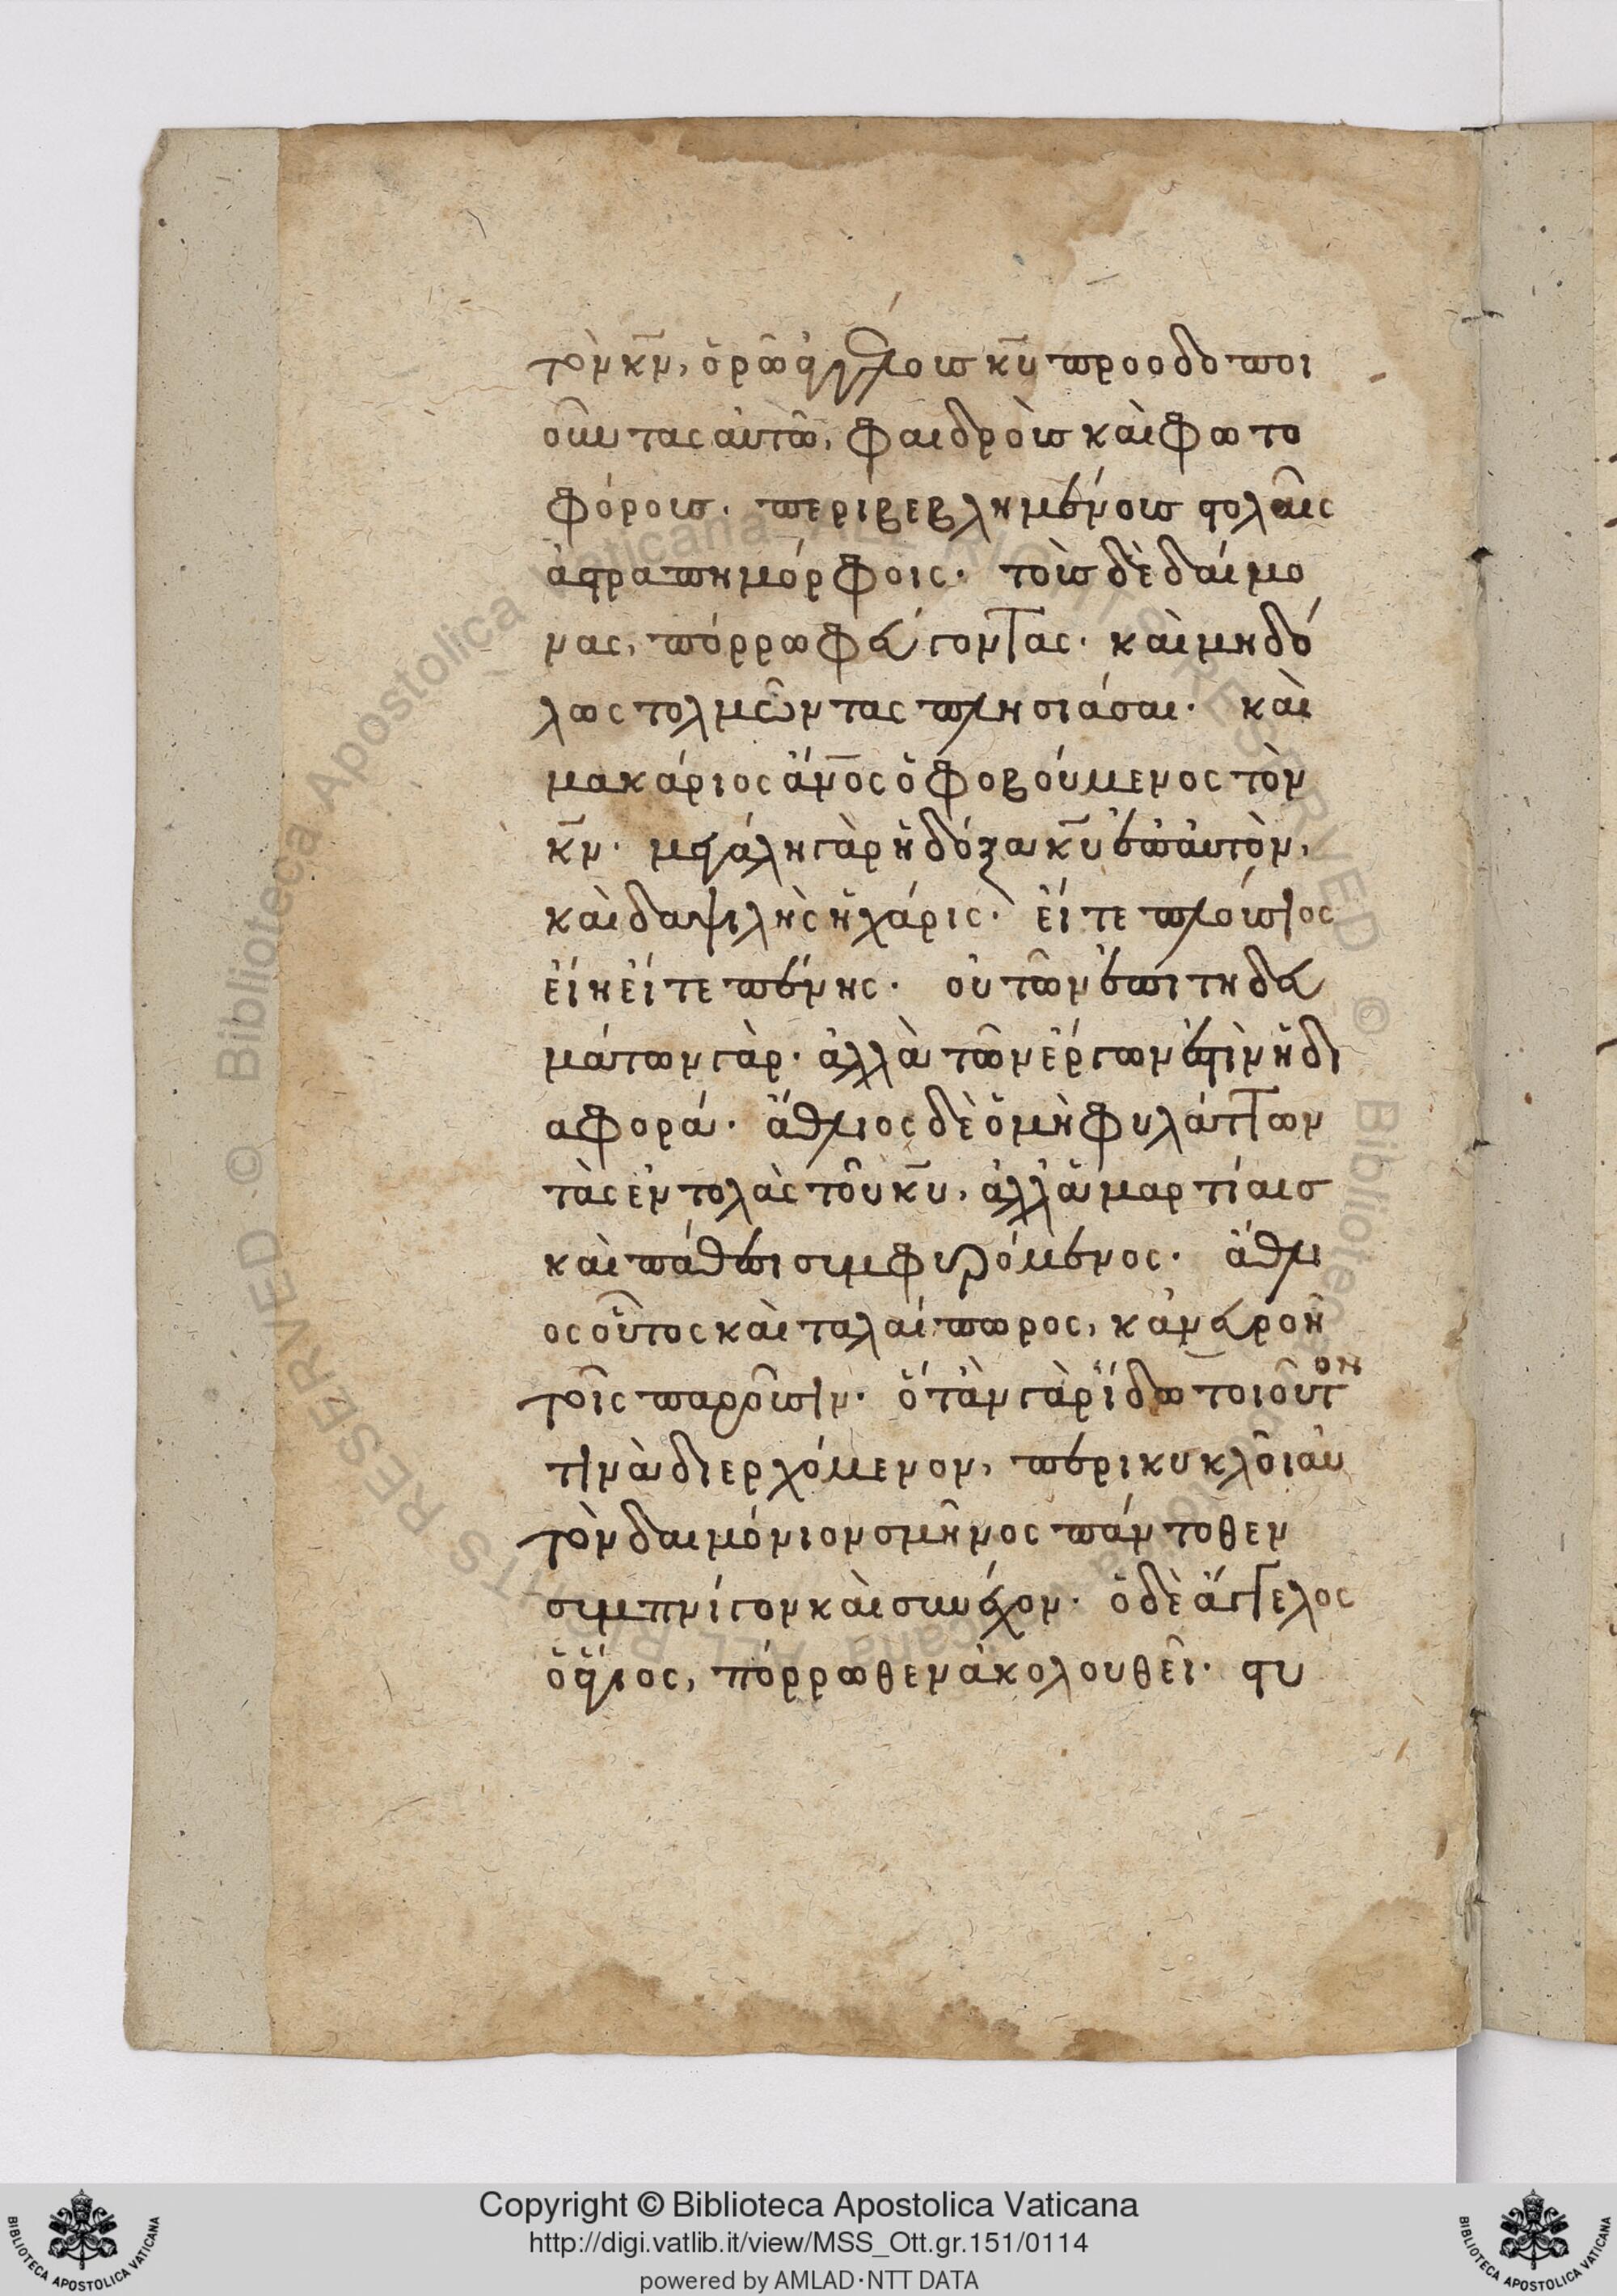 τὸν κ̅ν̅, ὁρῶ ἀγγέλους κ̅υ̅ προοδοποι
οῦντας αὐτῶ, φαιδροῖς καὶ φωτο
φόροις. περιβεβλημένοις στολαῖς
ἀστραπημόρφοις. τοῖς δὲ δαίμο
νας, πόρρω φεύγοντας. καὶ μηδό
λως τολμῶντας πλησιάσαι. καὶ
μακάριος ἄν̅ο̅ς ὁ φοβούμενος τὸν
κ̅ν̅. μεγάλη γὰρ ἡ δόξα κ̅υ̅ ἐπ' αὐτὸν,
καὶ δαψιλὴς ἡ χάρις. εἴτε πλούσιος
εἴη εἴτε πένης. οὐ τῶν ἐπιτηδευ
μάτων γὰρ. ἀλλὰ τῶν ἔργων ἐστὶν ἡ δι
αφορά. ἄθλιος δὲ ὁ μὴ φυλάττων
τὰς ἐντολὰς τοῦ κ̅υ̅, ἀλλ' ἁμαρτίαις
καὶ πάθεσι συμφυρόμενος. ἄθλι
ος οὗτος καὶ ταλαίπωρος, κἂν εὐροῆ
τοῖς παροῦσιν. ὅταν γὰρ ἴδω τοιοῦτον
τινὰ διερχόμενον, περικυκλοῖ αὐ
τὸν δαιμόνιον σμῆνος πάντοθεν
συμπνίγον καὶ συνέχον. ὁ δὲ ἄγγελος
ὁ ἅγιος, πόρρωθεν ἀκολουθεῖ. στυ
Copyright © Biblioteca Apostolica Vaticana
http://digi.vatlib.it/view/MSS_Ott.gr.151/0114
powered by AMLAD·NTT DATA